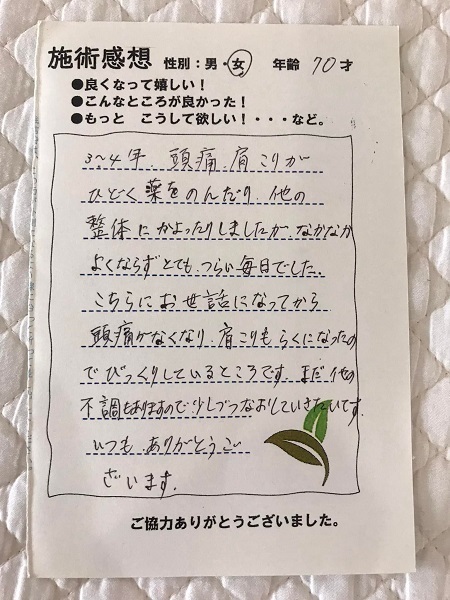 施術感想 性別：男・女 年齢 70才
●良くなって嬉しい！
●こんなところが良かった！
●もっと こうして欲しい！・・・など。
3～4年、頭痛、肩こりが
ひどく薬をのんだり、他の
整体にかよったりしましたが、なかなか
よくならずとても、つらい毎日でした。
こちらにお世話になってから
頭痛がなくなり、肩こりもらくになったの
でびっくりしているところです。まだ他の
不調もありますので少しづつなおしていきたいです。
いつも、ありがとうご
ざいます。
ご協力ありがとうございました。